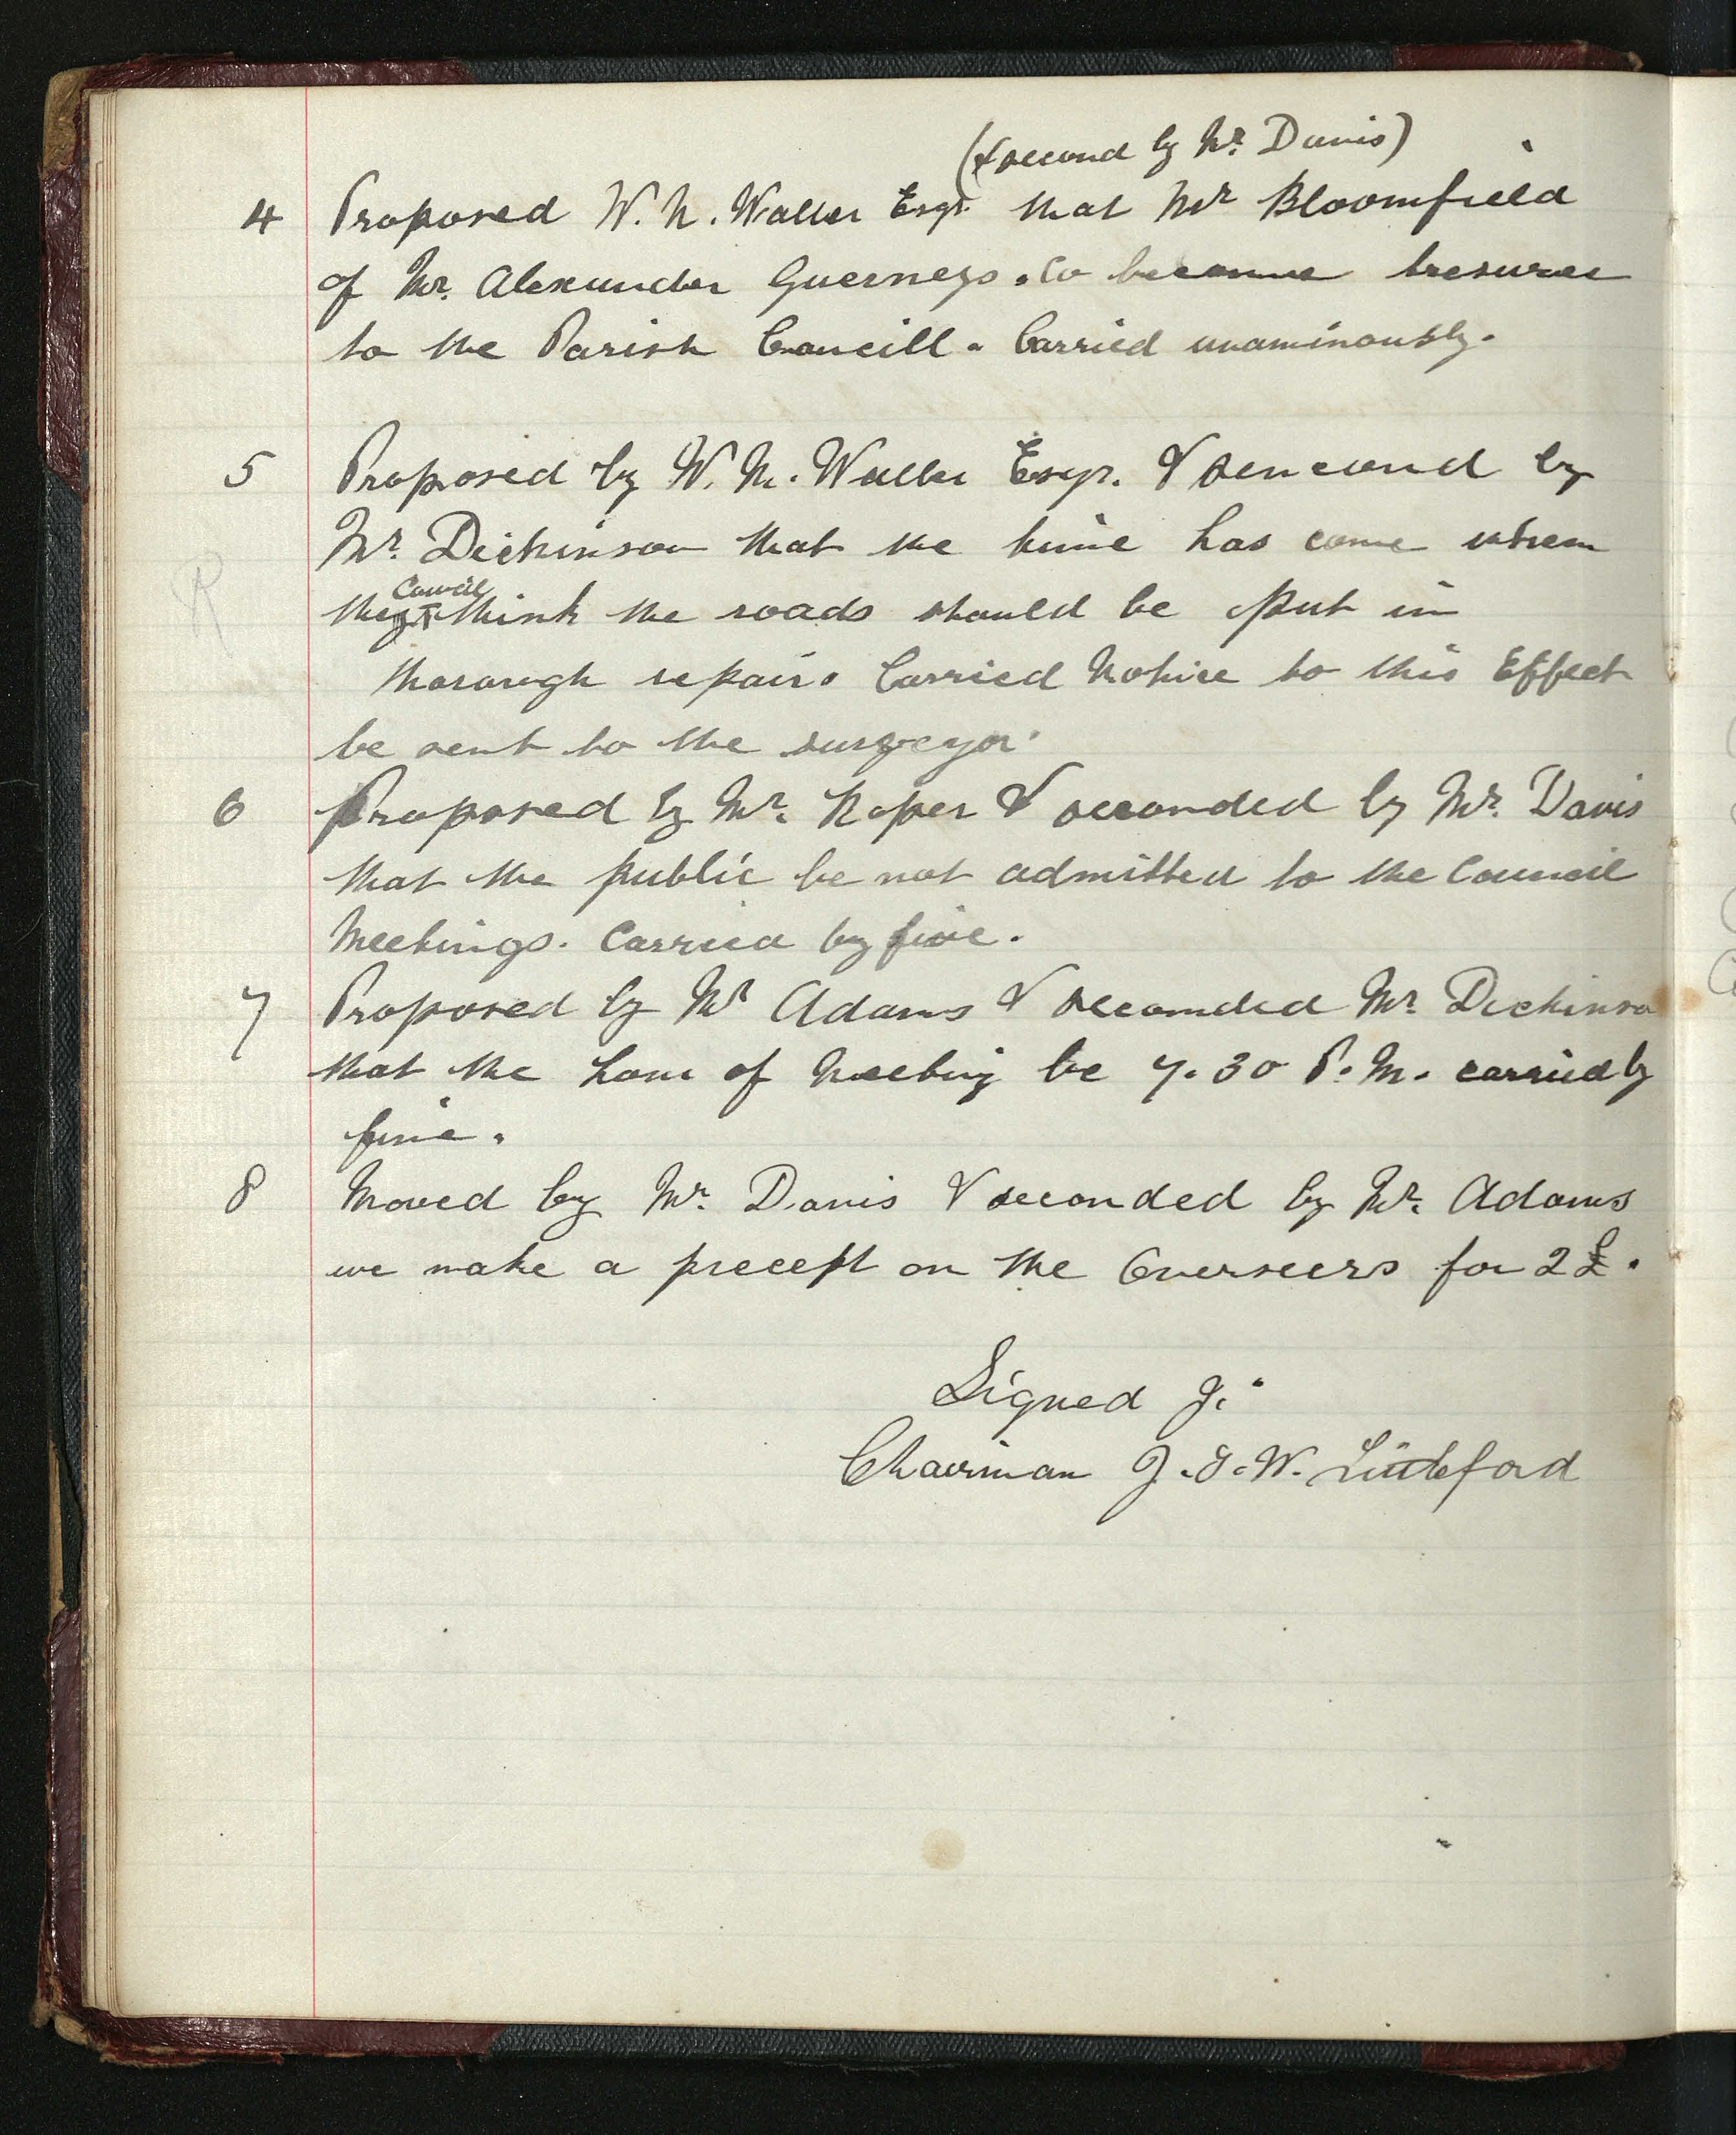 (& second by Mr. Davis)
4 Proposed W. N. Waller Esqr. that Mr Bloomfield
of Mr. Alexander Guerneys. Co become tresurer
to the Parish Councill. Carried unaminously.
5 Proposed by W. N. Waller Esqr. & sencond by
Mr. Dickinson that the time has come when
Council
the think the roads should be put in
thorough repair. Carried Notice to this Effect
be sent to the surveyor.
6 Proposed by Mr. Roper & seconded by Mr. Davis
that the public be not admitted to the Council
Meetings. Carried by five.
7 Proposed by Mr Adams & seconded Mr. Dickinson
that the hour of Meeting be 7.30 P.M. carried by
five.
8 Moved by Mr. Davis & seconded by Mr. Adams
we make a precept on the Overseers for 2£.
Signed J.
Chairman J. J. W. Littleford